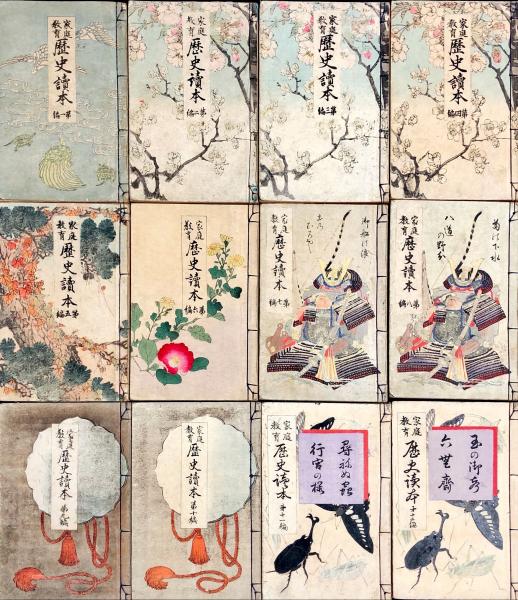 家庭
教育
歴史讀本
第一編
家庭
教育
歴史讀本
第二編
家庭
教育
歴史讀本
第三編
家庭
教育
歴史讀本
第四編
家庭
教育
歴史讀本
第五編
家庭
教育
歴史讀本
第六編
御船の浪
家庭
教育
歴史讀本
第七編
菊の下水
八道の野分
家庭
教育
歴史讀本
第八編
家庭
教育
歴史讀本
第九編
家庭
教育
歴史讀本
第十編
尋ねぬ蟲
行宮の櫻
家庭
教育
歴史读本
第十一編
玉の御声
六無齋
家庭
教育
歴史读本
第十二編